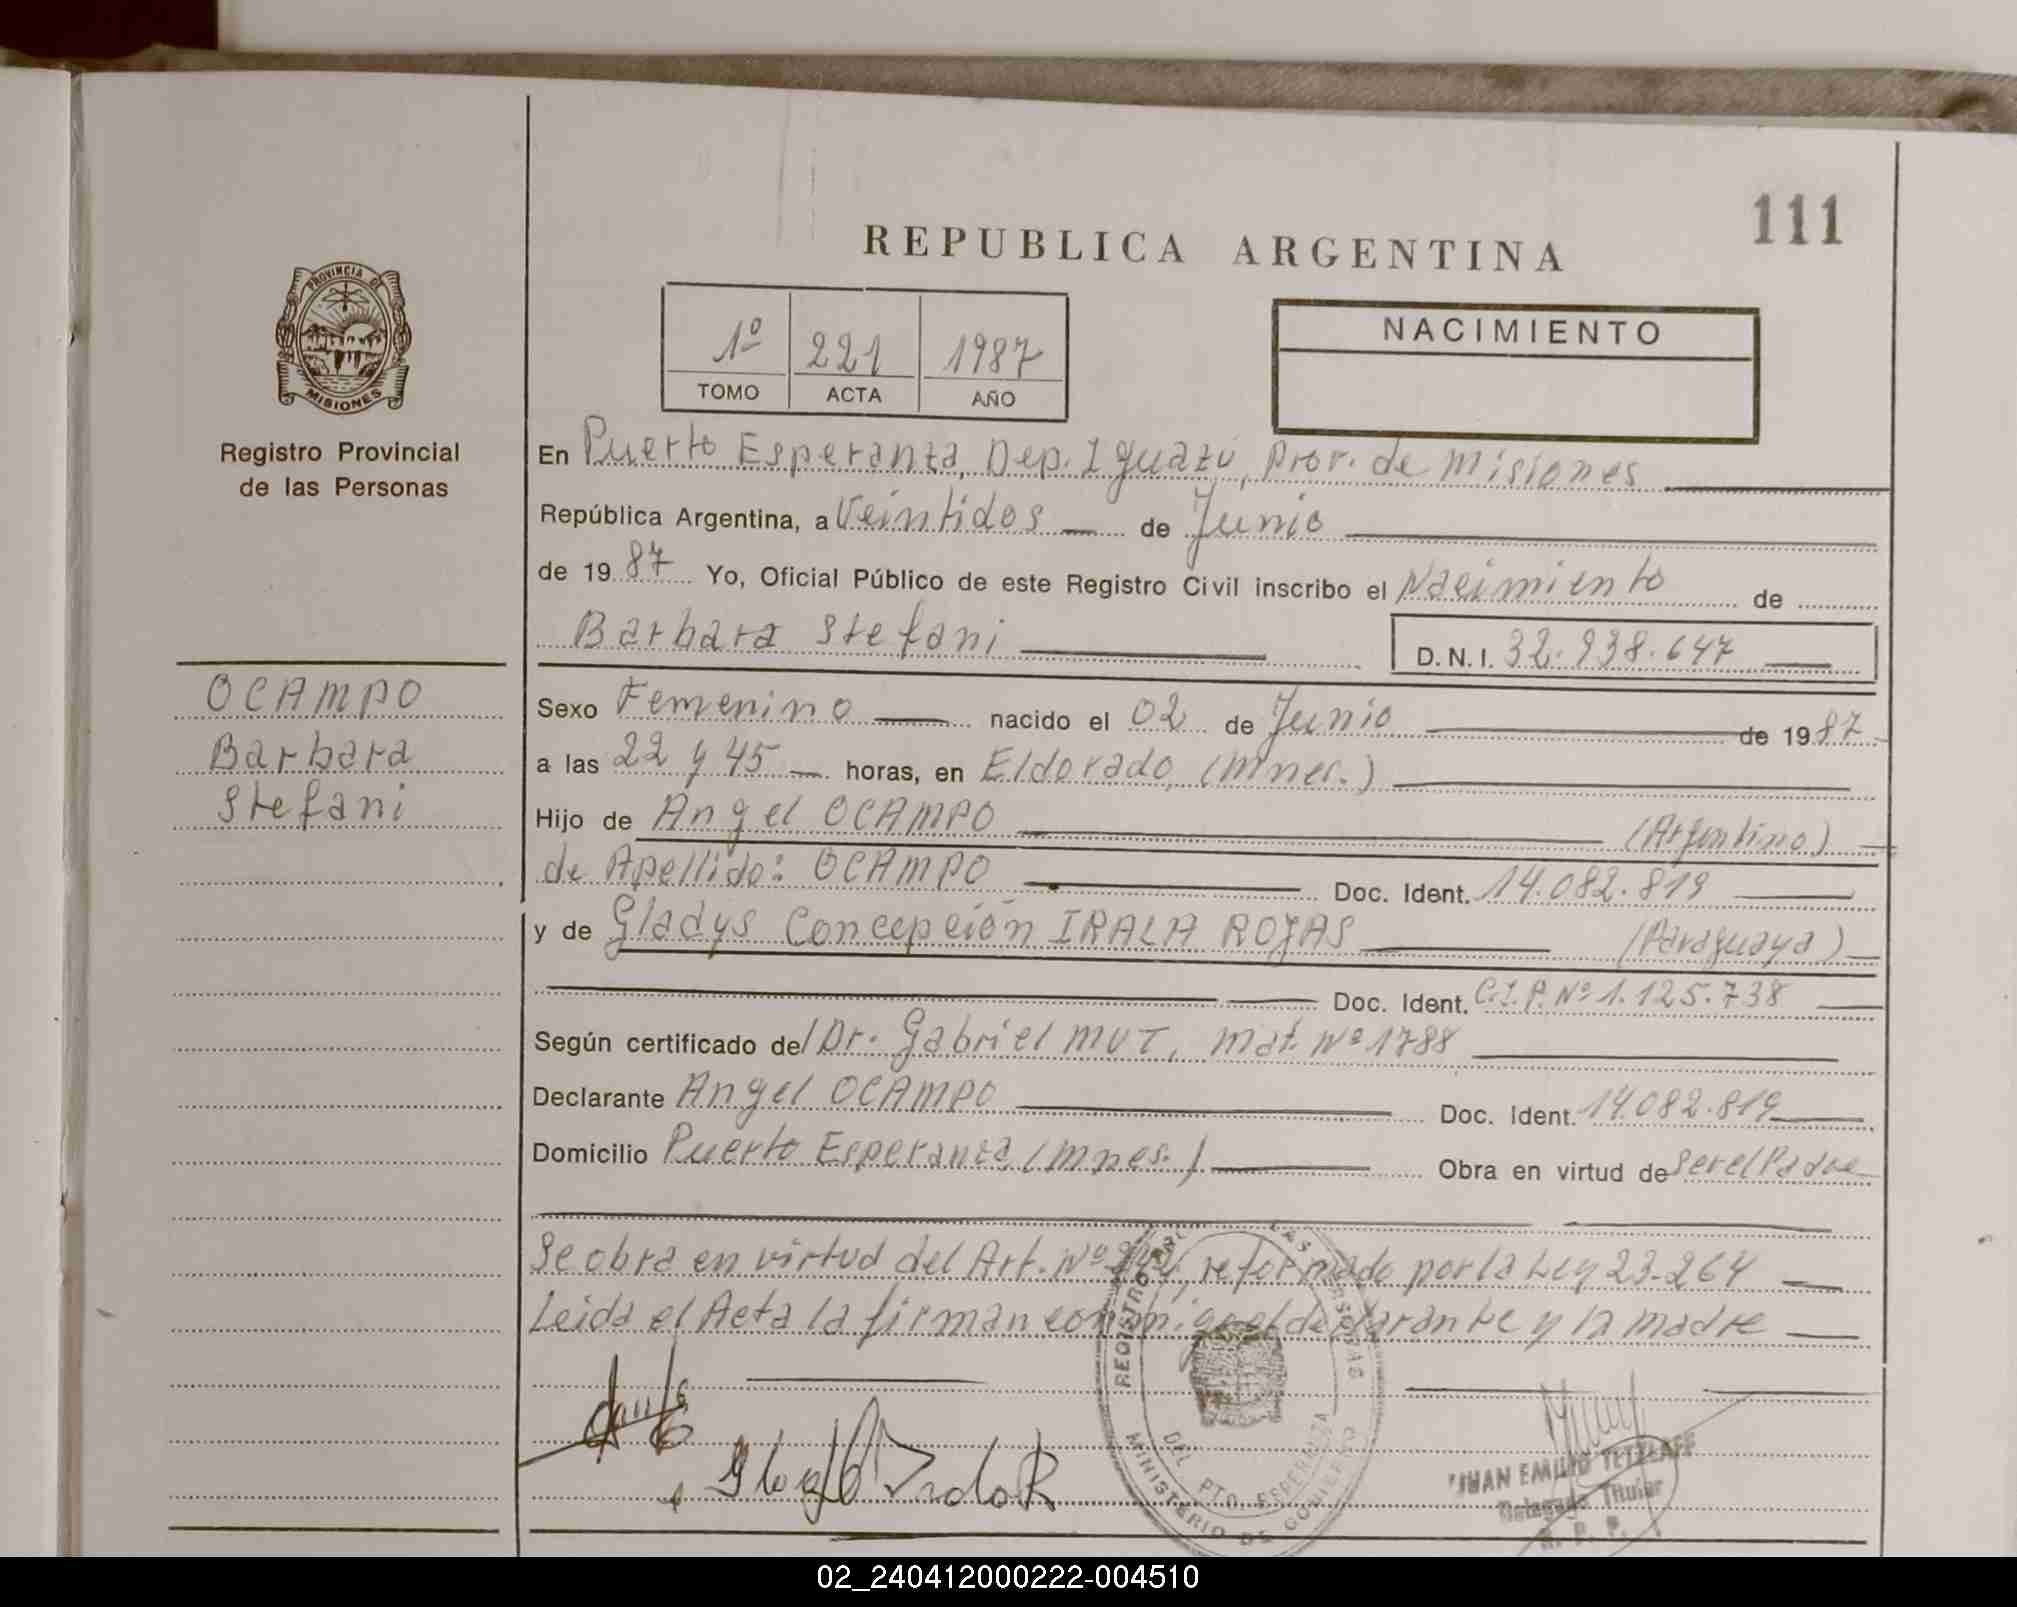 111
REPUBLICA ARGENTINA
PROVINCIA DE
MISIONES
1º 221 1987
TOMO ACTA AÑO
NACIMIENTO
Registro Provincial
de las Personas
En Puerto Esperanza, Dep. Iguazú, Prov. de Misiones
República Argentina, a Veintidos de Junio
de 1987 Yo, Oficial Público de este Registro Civil inscribo el Nacimiento de
Barbara Stefani D.N.I. 32.938.647
OCAMPO
Barbara
Stefani
Sexo Femenino nacido el 02 de Junio de 1987
a las 22 y 45 horas, en Eldorado, (Mnes.)
Hijo de Angel OCAMPO (Argentino)
de Apellido: OCAMPO Doc. Ident. 14.082.819
y de Gladys Concepción IRALA ROJAS (Paraguaya)
Doc. Ident. C.I.P. Nº 1.125.738
Según certificado del Dr. Gabriel MUT, Mat. Nº 1788
Declarante Angel OCAMPO Doc. Ident. 14.082.819
Domicilio Puerto Esperanza, (Mnes.) Obra en virtud de Ser el Padre
Se obra en virtud del Art. Nº reformado por la Ley 23.264
Leida el Acta la firman conmigo el declarante y la madre
REGISTRO LAS PERSONAS
DEL PTO. ESPERANZA
MINISTERIO DE GOBIERNO
JUAN EMILIO TETZLAFF
Delegado Titular
R. P. P.
02_240412000222-004510